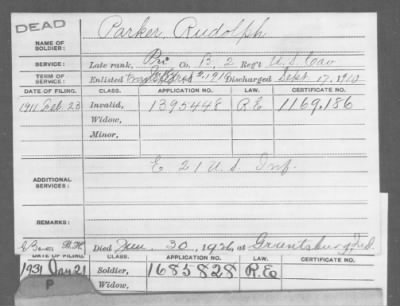 DEAD
NAME OF SOLDIER: Parker, Rudolph
SERVICE: Late rank, Pri Co. B, 2 Reg't U.S. Cav
TERM OF SERVICE: Enlisted 1910 Discharged Sept. 17, 1910
DATE OF FILING. CLASS. APPLICATION NO. LAW. CERTIFICATE NO.
1911 Feb. 23 Invalid, 1395448 R.E 1169,186
Widow,
Minor,
ADDITIONAL SERVICES: E. 21 U.S. Inf.
REMARKS:
Died 30, 1926, at Grantsburg, Ind.
DATE OF FILING. CLASS. APPLICATION NO. LAW. CERTIFICATE NO.
1931 Jan 21 Soldier, 1685828 R.E
P Widow,